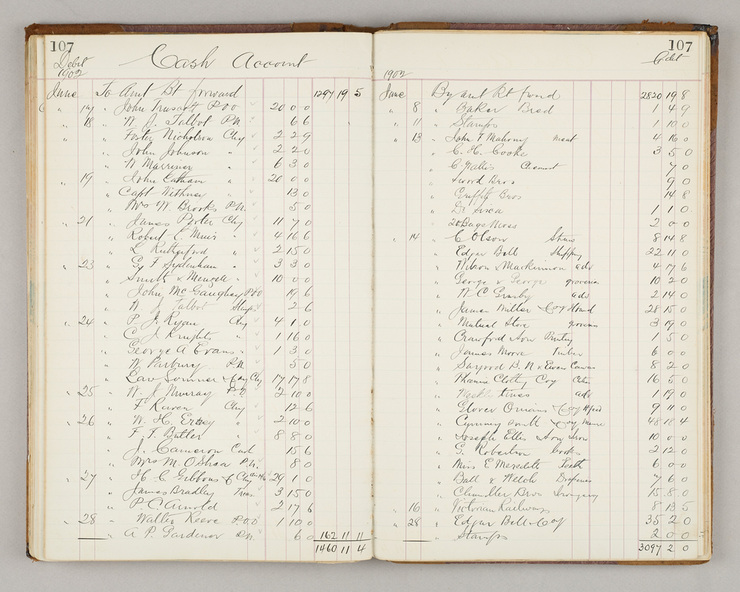 107
Debit
1902
Cash Account
June To Amt Bt forward 1297 19 5
17 John Truscott P.O.O 20 0 0
18 W. J. Talbot P.N. 6 6
Foster Nicholson Chq 2 2 9
John Johnson 2 2 0
W Marriner 6 3 0
19 John Latham 20 0 0
Capt 13 0
Mrs W Brooks P.N. 5 0
21 James Porter Chq 11 7 0
Robert L Muir 4 16 6
L Rutherford 2 15 0
23 G F Sydenham 3 3 0
& Menzell 10 0 0
John McGaughey P.O.O 19 6
W J Talbot Stamps 2 6
24 P. J. Ryan Chq 4 1 0
C J Knights 1 16 0
George A Evans 1 3 0
W Parbury P.N. 5 0
Law Sommer & Coy Chq 17 17 8
25 W J Murray P.O. 2 10 0
F Chq 12 6
26 W. H. 2 10 0
F. F. Butler 8 8 0
J. Cameron Cash 15 6
Mrs M. O'Shea P.N. 8 0
27 H C Gibbons & Coy 29 1 0
James Bradley 3 15 0
P. C. Arnold 2 17 6
28 Walter Reeve P.O.O 1 10 0
A. P. Gardener P.N. 6 0 162 11 11
1460 11 4
107
Credit
1902
June By amt Bt forwd 2820 19 8
8 Baker Bread 1 4 9
11 Stamps 1 10 0
13 John F Mahony Meat 4 16 0
C. H. Cooke 3 5 0
C Wallis 7 0
Sword Bros 9 0
Griffith Bros 14 8
Dr 1 1 0
20 Bags Moss 2 0 0
14 C Olson Stairs 8 14 8
Edgar Bell Shipping 22 11 0
Wilson & Mackinnon ads 4 17 6
George & George groceries 10 2 0
W C Granby ads 2 14 0
James Miller & Coy 28 15 0
Mutual Store groceries 3 19 0
Crawford 1 5 0
James Moore Timber 6 0 0
8 2 0
Clothg Coy 16 5 0
Times ads 1 19 0
Glover Onians & Coy 9 11 0
Smith & Coy 48 18 4
Joseph Ellis Iron 10 0 0
G. Robertson books 2 12 0
Miss E Meredith Teeth 6 0 0
Ball & Welch 7 6 0
Chandler Bros Ironmongery 15 8 0
16 Victorian Railways 8 13 5
28 Edgar Bell & Coy 35 2 0
Stamps 2 0 0
3097 2 0